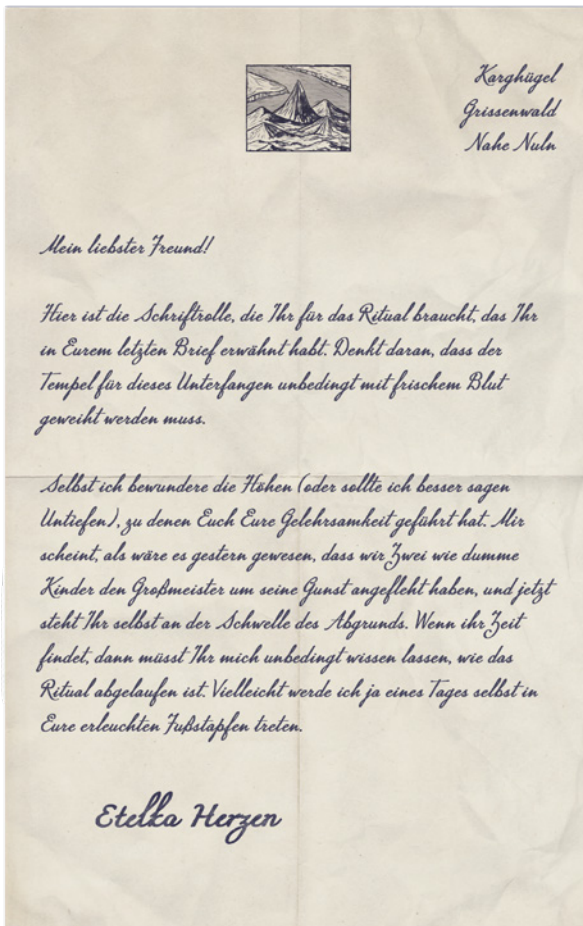 Karghügel
Grissenwald
Nahe Nuln
Mein liebster Freund!
Hier ist die Schriftrolle, die Ihr für das Ritual braucht, das Ihr
in Eurem letzten Brief erwähnt habt. Denkt daran, dass der
Tempel für dieses Unterfangen unbedingt mit frischem Blut
geweiht werden muss.
Selbst ich bewundere die Höhen (oder sollte ich besser sagen
Untiefen), zu denen Euch Eure Gelehrsamkeit geführt hat. Mir
scheint, als wäre es gestern gewesen, dass wir Zwei wie dumme
Kinder den Großmeister um seine Gunst angefleht haben, und jetzt
steht Ihr selbst an der Schwelle des Abgrunds. Wenn ihr Zeit
findet, dann müsst Ihr mich unbedingt wissen lassen, wie das
Ritual abgelaufen ist. Vielleicht werde ich ja eines Tages selbst in
Eure erleuchten Fußstapfen treten.
Etelka Herzen